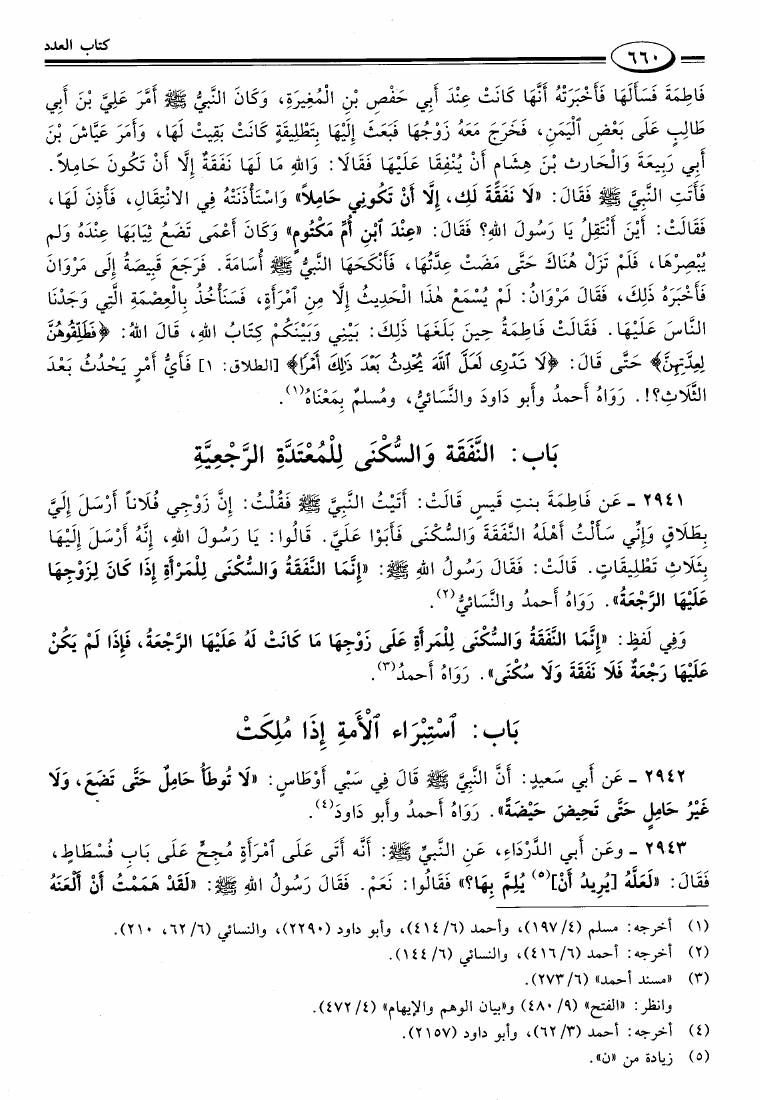 كتاب العدد
٦٦٠
فَاطِمَةَ فَسَأَلَهَا فَأَخْبَرَتْهُ أَنَّهَا كَانَتْ عِنْدَ أَبِي حَفْصِ بْنِ الْمُغِيرَةِ، وَكَانَ النَّبِيُّ ﷺ أَمَّرَ عَلِيَّ بْنَ أَبِي
طَالِبٍ عَلَى بَعْضِ الْيَمَنِ، فَخَرَجَ مَعَهُ زَوْجُهَا فَبَعَثَ إِلَيْهَا بِتَطْلِيقَةٍ كَانَتْ بَقِيَتْ لَهَا، وَأَمَرَ عَيَّاشَ بْنَ
أَبِي رَبِيعَةَ وَالْحَارِثَ بْنَ هِشَامٍ أَنْ يُنْفِقَا عَلَيْهَا فَقَالَا: وَاللهِ مَا لَهَا نَفَقَةٌ إِلَّا أَنْ تَكُونَ حَامِلاً.
فَأَتَتِ النَّبِيَّ ﷺ فَقَالَ: «لَا نَفَقَةَ لَكِ، إِلَّا أَنْ تَكُونِي حَامِلاً» وَاسْتَأْذَنَتْهُ فِي الانْتِقَالِ، فَأَذِنَ لَهَا،
فَقَالَتْ: أَيْنَ أَنْتَقِلُ يَا رَسُولَ اللهِ؟ فَقَالَ: «عِنْدَ ٱبْنِ أُمِّ مَكْتُومٍ» وَكَانَ أَعْمَى تَضَعُ ثِيَابَهَا عِنْدَهُ وَلم
يُبْصِرْهَا، فَلَمْ تَزَلْ هُنَاكَ حَتَّى مَضَتْ عِدَّتُهَا، فَأَنْكَحَهَا النَّبِيُّ ﷺ أُسَامَةَ. فَرَجَعَ قَبِيصَةُ إِلَى مَرْوَانَ
فَأَخْبَرَهُ ذَلِكَ، فَقَالَ مَرْوَانُ: لَمْ يُسْمَعْ هٰذَا الْحَدِيثُ إِلَّا مِنِ ٱمْرَأَةٍ، فَسَنَأْخُذُ بِالْعِصْمَةِ الَّتِي وَجَدْنَا
النَّاسَ عَلَيْهَا. فَقَالَتْ فَاطِمَةُ حِينَ بَلَغَهَا ذَلِكَ: بَيْنِي وَبَيْنَكُمْ كِتَابُ اللهِ، قَالَ اللهُ: ﴿فَطَلِّقُوهُنَّ
لِعِدَّتِهِنَّ﴾ حَتَّى قَالَ: ﴿لَا تَدْرِى لَعَلَّ ٱللَّهَ يُحْدِثُ بَعْدَ ذَٰلِكَ أَمْرًا﴾ [الطلاق: ١] فَأَيُّ أَمْرٍ يَحْدُثُ بَعْدَ
الثَّلَاثِ؟!. رَوَاهُ أَحمدُ وأبو دَاودَ والنَّسَائيُّ، ومُسلمٌ بِمَعْنَاهُ(١).
بَاب: النَّفَقَة وَالسُّكْنَى لِلْمُعْتَدَّةِ الرَّجْعِيَّةِ
٢٩٤١ ـ عَن فَاطِمَةَ بنتِ قَيسٍ قَالَتْ: أَتَيْتُ النَّبِيَّ ﷺ فَقُلْتُ: إِنَّ زَوْجِي فُلَاناً أَرْسَلَ إِلَيَّ
بِطَلَاقٍ وَإِنِّي سَأَلْتُ أَهْلَهُ النَّفَقَةَ وَالسُّكْنَى فَأَبَوْا عَلَيَّ. قَالُوا: يَا رَسُولَ اللهِ، إِنَّهُ أَرْسَلَ إِلَيْهَا
بِثَلَاثِ تَطْلِيقَاتٍ. قَالَتْ: فَقَالَ رَسُولُ اللهِ ﷺ: «إِنَّمَا النَّفَقَةُ وَالسُّكْنَى لِلْمَرْأَةِ إِذَا كَانَ لِزَوْجِهَا
عَلَيْهَا الرَّجْعَةُ». رَوَاهُ أَحمدُ والنَّسَائيُّ(٢).
وَفِي لَفظٍ: «إِنَّمَا النَّفَقَةُ وَالسُّكْنَى لِلْمَرأَةِ عَلَى زَوْجِهَا مَا كَانَتْ لَهُ عَلَيْهَا الرَّجْعَةُ، فَإِذَا لَمْ يَكُنْ
عَلَيْهَا رَجْعَةٌ فَلَا نَفَقَةَ وَلَا سُكْنَى». رَوَاهُ أَحمدُ(٣).
بَاب: ٱسْتِبْرَاء ٱلْأَمَةِ إِذَا مُلِكَتْ
٢٩٤٢ ـ عَن أَبي سَعيدٍ: أَنَّ النَّبِيَّ ﷺ قَالَ فِي سَبْيِ أَوْطَاسٍ: «لَا تُوطَأُ حَامِلٌ حَتَّى تَضَعَ، وَلَا
غَيْرُ حَامِلٍ حَتَّى تَحِيضَ حَيْضَةً». رَوَاهُ أَحمدُ وأبو دَاودَ(٤).
٢٩٤٣ ـ وعَن أبي الدَّرْدَاءِ، عَنِ النَّبيِّ ﷺ: أَنَّه أَتَى عَلَى ٱمْرَأَةٍ مُجِحٍّ عَلَى بَابِ فُسْطَاطٍ،
فَقَالَ: «لَعَلَّهُ [يُرِيدُ أَنْ](٥) يُلِمَّ بِهَا؟» فَقَالُوا: نَعَمْ. فَقَالَ رَسُولُ اللهِ ﷺ: «لَقَدْ هَمَمْتُ أَنْ أَلْعَنَهُ
(١) أخرجه: مسلم (٤/١٩٧)، وأحمد (٦/٤١٤)، وأبو داود (٢٢٩٠)، والنسائي (٦/٦٢، ٢١٠).
(٢) أخرجه: أحمد (٦/٤١٦)، والنسائي (٦/١٤٤).
(٣) «مسند أحمد» (٦/٢٧٣).
وانظر: «الفتح» (٩/٤٨٠) و«بيان الوهم والإيهام» (٤/٤٧٢).
(٤) أخرجه: أحمد (٣/٦٢)، وأبو داود (٢١٥٧).
(٥) زيادة من «ن».